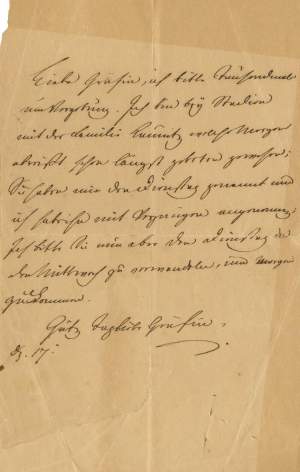 Liebe Gräfin, ich bitte Tausendmal
um Vergebung. Ich bin bey Stadion
mit der Familie welche Morgen
abreist schon längst gebeten gewesen;
Sie haben mir den Dienstag genannt und
ich habe ihn mit Vergnügen angenommen;
Ich bitte Sie nun aber den Dienstag in
den Mittwoch zu verwandeln, und Morgen
zu kommen.
Gräfin.
17